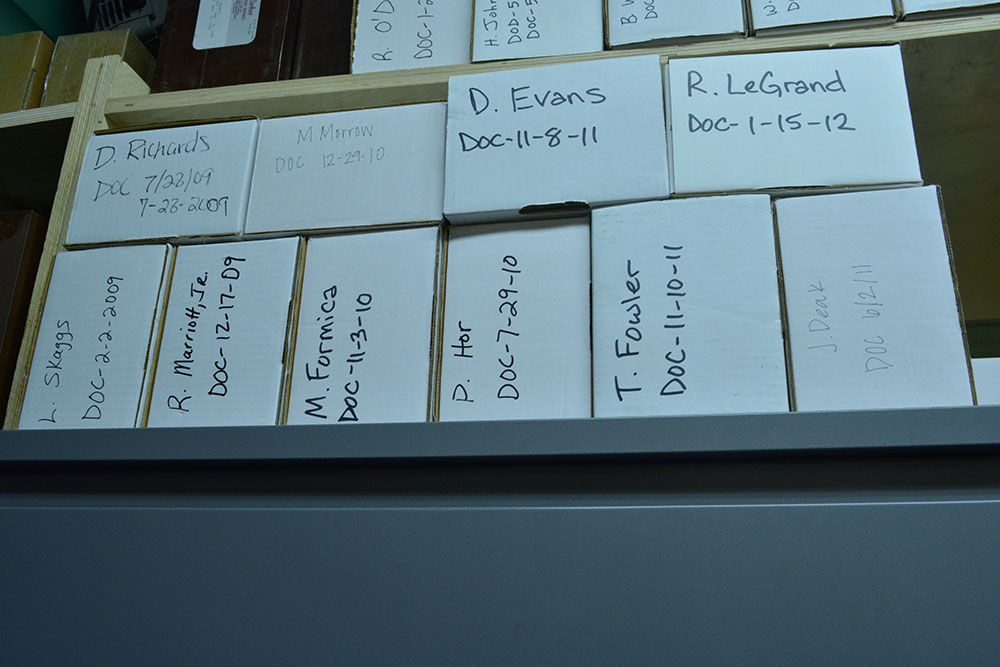 R. O'D
DOC-1-2
H. Joh
DOD-5
DOC-5
B
DOC
Wi
D
D. Richards
DOC 7/28/09
7-28-2009
M. Morrow
DOC 12-29-10
D. Evans
DOC-11-8-11
R. LeGrand
DOC-1-15-12
L. Skaggs
DOC-2-2-2009
R. Marriott, Jr.
DOC-12-17-09
M. Formica
DOC-11-3-10
P. Hor
DOC-7-29-10
T. Fowler
DOC-11-10-11
J. Deak
DOC 6/2/11